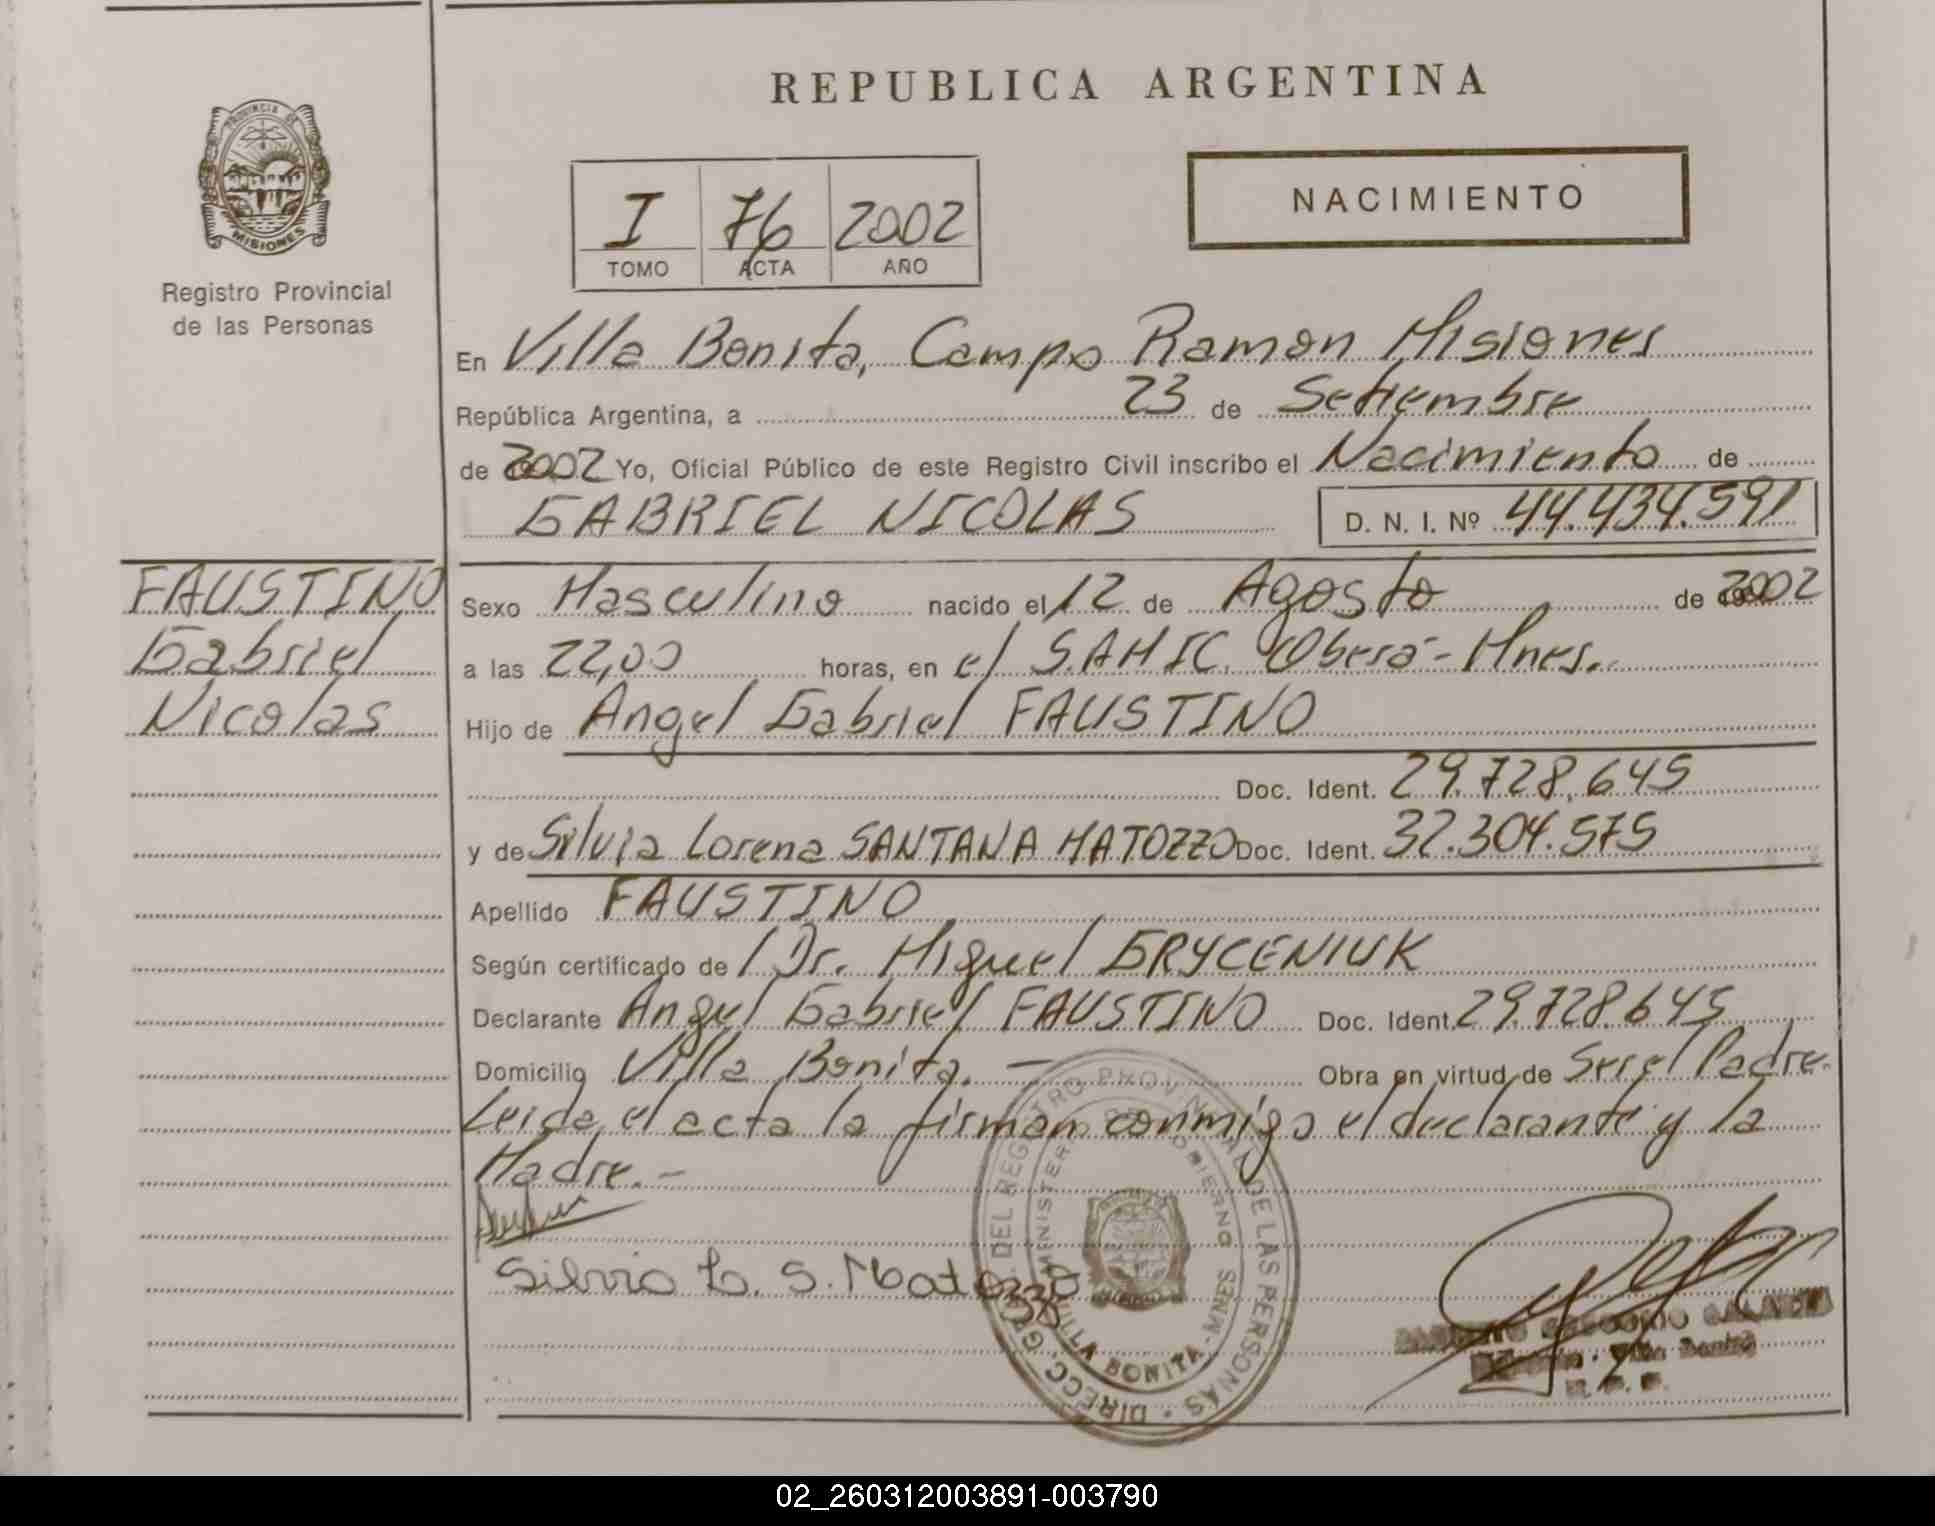 REPUBLICA ARGENTINA
PROVINCIA DE
MISIONES
Registro Provincial
de las Personas
I 76 2002
TOMO ACTA AÑO
NACIMIENTO
En Villa Bonita, Campo Ramon Misiones
República Argentina, a 23 de Setiembre
de 2002 Yo, Oficial Público de este Registro Civil inscribo el Nacimiento de
GABRIEL NICOLAS D. N. I. Nº 44.434.591
FAUSTINO
Gabriel
Nicolas
Sexo Masculino nacido el 12 de Agosto de 2002
a las 22,00 horas, en el S.AMIC. Oberá - Mnes.
Hijo de Angel Gabriel FAUSTINO
Doc. Ident. 29.728.645
y de Silvia Lorena SANTANA MATOZZO Doc. Ident. 32.304.575
Apellido FAUSTINO
Según certificado de Dr. Miguel GRYCENIUK
Declarante Angel Gabriel FAUSTINO Doc. Ident. 29.728.645
Domicilio Villa Bonita. — Obra en virtud de Ser el Padre.
Leida el acta la firman conmigo el declarante y la
Madre. -
Silvia L. S. Matozzo
DIRECC. GRAL. DEL REGISTRO PROVINCIAL DE LAS PERSONAS
MINISTERIO DE GOBIERNO
VILLA BONITA - MNES
Villa Bonita
R. P. P.
02_260312003891-003790